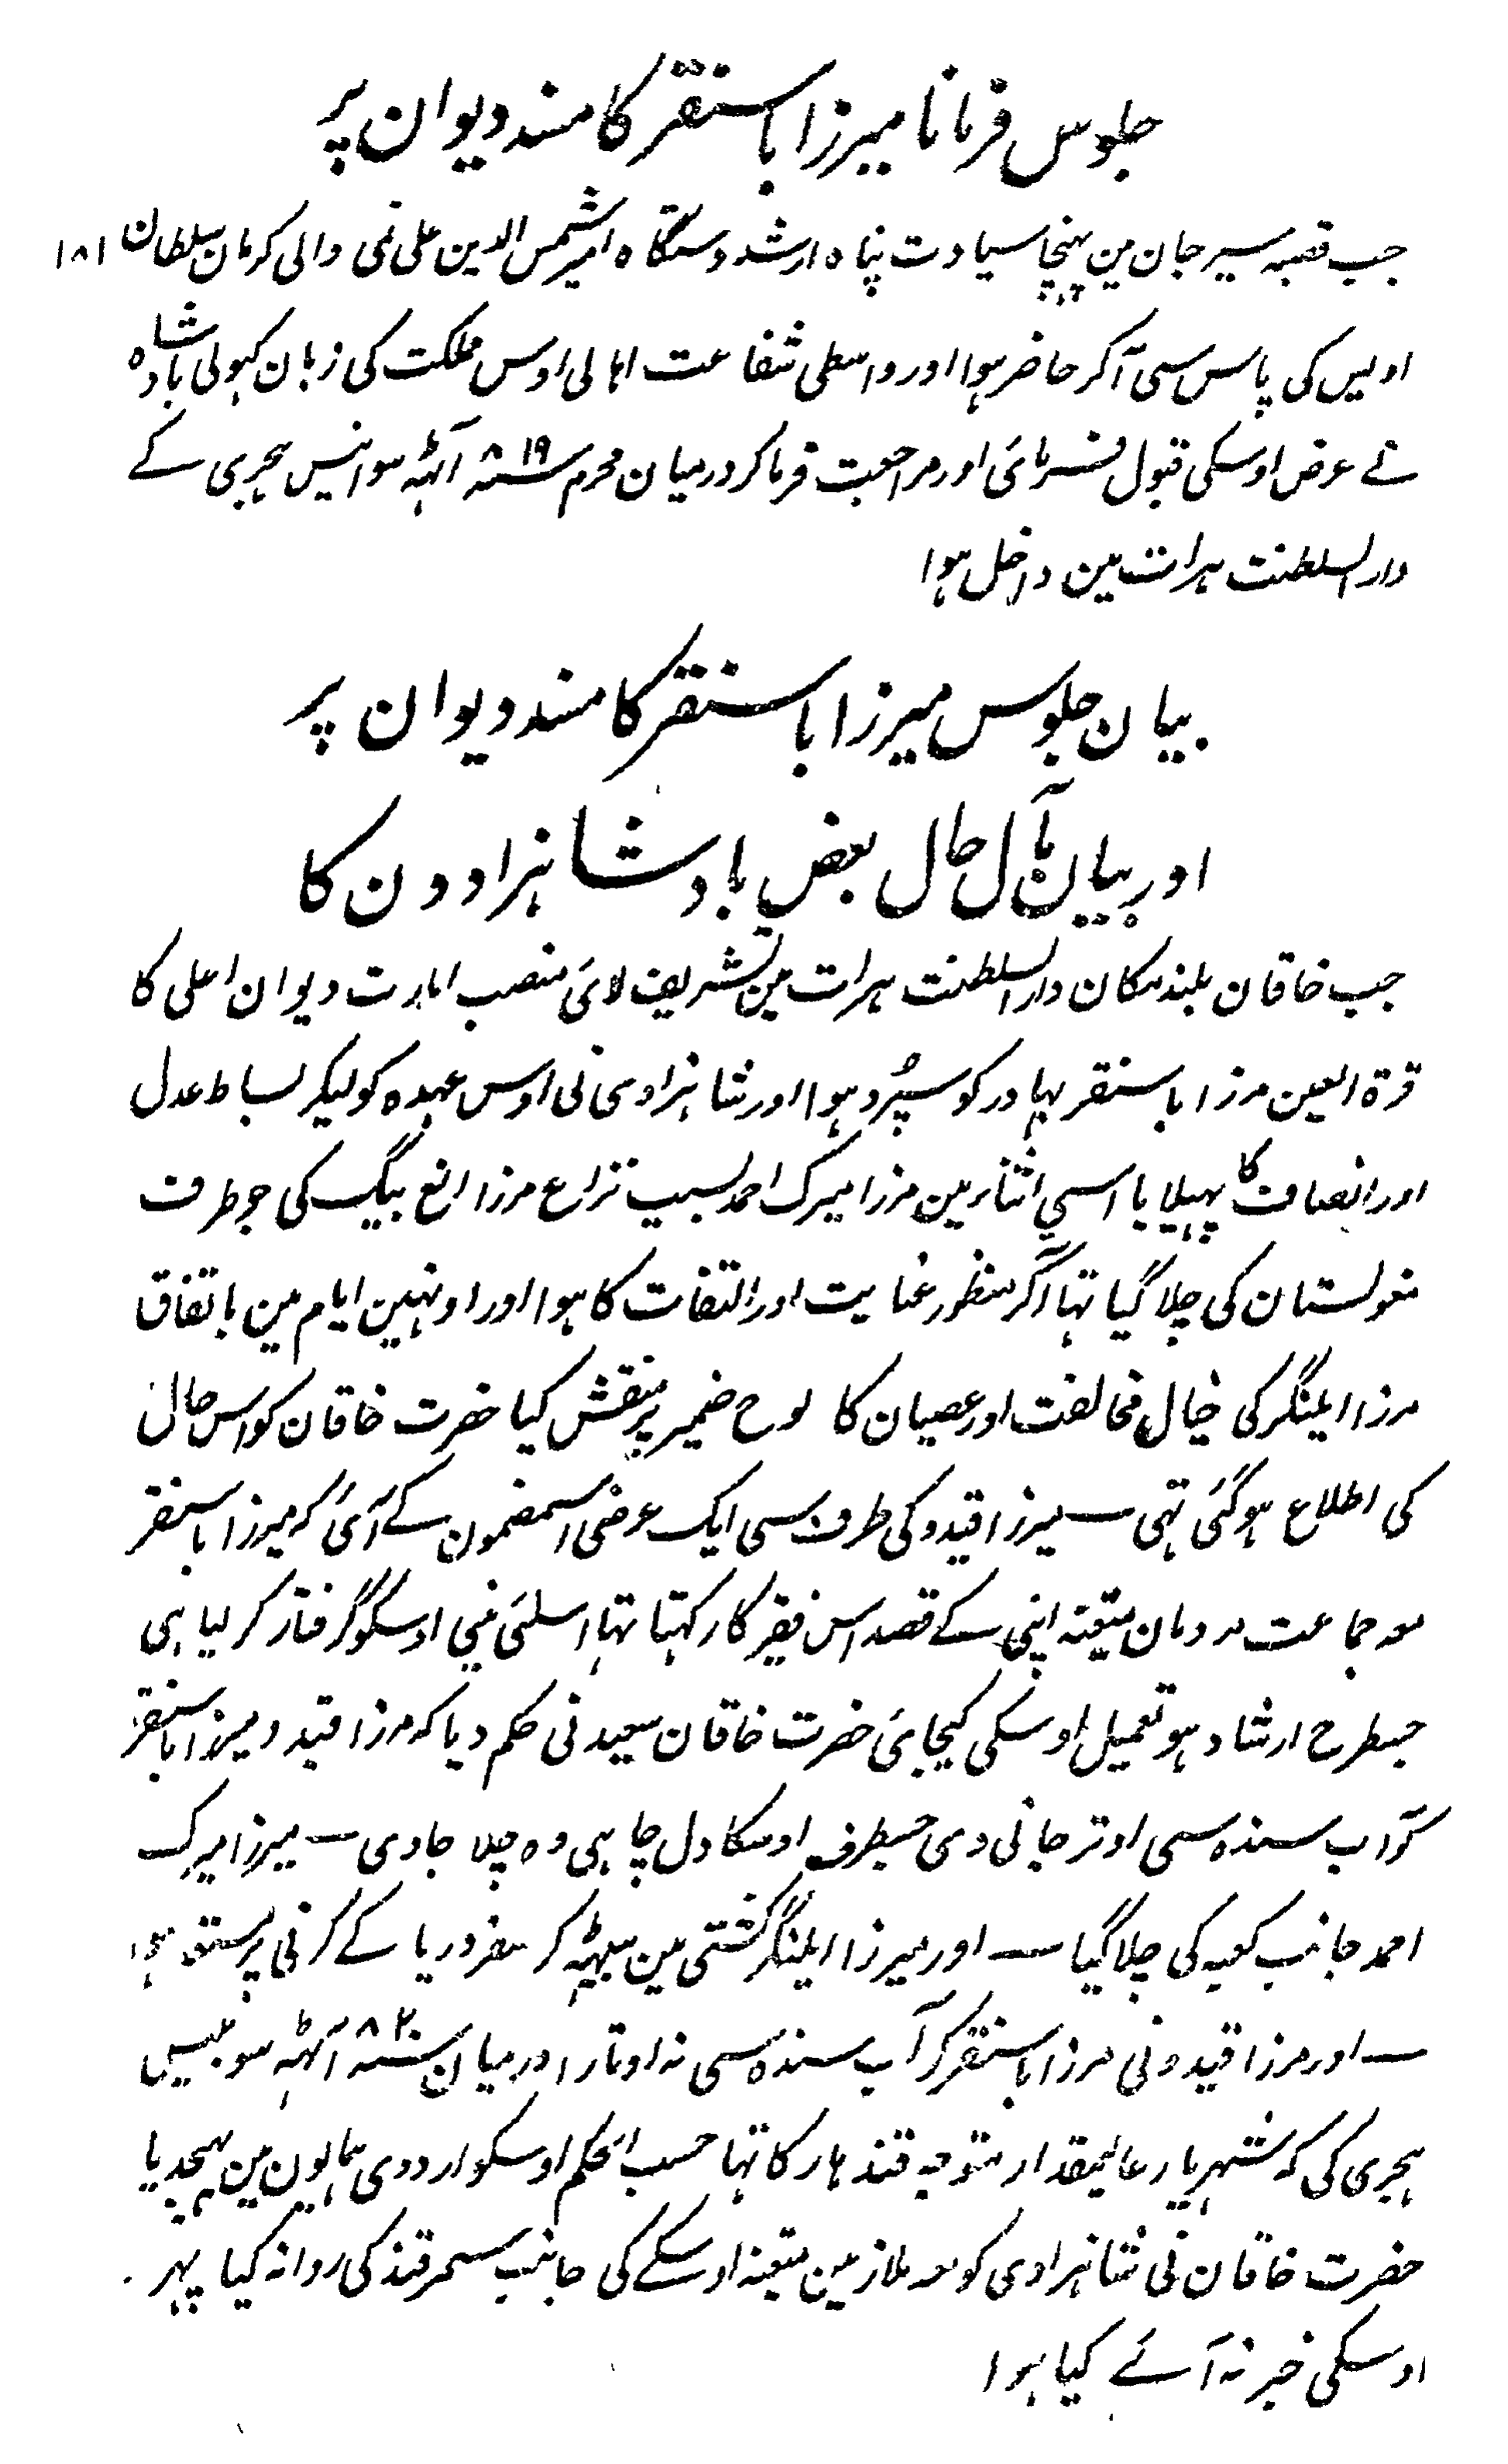 جلوس فرمانا میرزا باسنقر کا مسند دیوان پر
جب قصبہ سیرجان مین پہنچا سیادت پناہ ارشد دستگاہ امیر شمس الدین علی نمی والی کرمان سلطان ۱۸۱
اویس کی پاس سی آکر حاضر ہوا اور واسطی شفاعت اہالی اوس مملکت کی زبان کہولی بادشاہ
نے عرض اوسکی قبول فرمائی اور مراجعت فرماکر درمیان محرم سنہ ۸۱۹ آٹہہ سو انیس ہجری کے
دارالسلطنت ہرات مین داخل ہوا
بیان جلوس میرزا باسنقر کا مسند دیوان پر
اور بیان مآل حال بعض بادشاہزادون کا
جب خاقان بلند مکان دارالسلطنت ہرات مین تشریف لائی منصب امارت دیوان اعلی کا
قرۃ العین مرزا باسنقر بہادر کو سپُرد ہوا اور شاہزادی نی اوس عہدہ کو لیکر بساط عدل
اور انصاف کا پہیلایا اسی اثنا مین مرزا میرک احمد بسبب نزاع مرزا الغ بیگ کی جو طرف
مغولستان کی چلا گیا تہا آکر منظور عنایت اور التفات کا ہوا اور اونہین ایام مین باتفاق
مرزا ایلنگر کی خیال مخالفت اور عصیان کا لوح ضمیر پر منقش کیا حضرت خاقان کو اس حال
کی اطلاع ہوگئی تہی — میرزا قیدو کی طرف سی ایک عرضی اسمضمون کے آئی کہ میرزا باسنقر
معہ جماعت مردمان متعینہ اپنی کے قصد اس فقیر کا رکہتا تہا اسلئی مینی اوسکو گرفتار کر لیا ہی
جسطرح ارشاد ہو تعمیل اوسکی کیجائی حضرت خاقان سعید نی حکم دیا کہ مرزا قیدو میرزا باسنقر
کو آب سندہ سی اوتر جانی دی جسطرف اوسکا دل چاہی وہ چلا جاوی — میرزا میرک
احمد جانب کعبہ کی چلا گیا — اور میرزا ایلنگر کشتی مین بیٹہہ کر سفر دریا کے کرنی پر مستعد ہوا
— اور مرزا قیدو نی مرزا باسنقر کو آب سندہ سی نہ اوتارا درمیان سنہ ۸۲۰ آٹہہ سو بیس
ہجری کی کہ شہریار عالیمقدار متوجہ قندہار کا تہا حسب الحکم اوسکو اردوی ہمایون مین بہیجدیا
حضرت خاقان نی شاہزادی کو معہ ملازمین متعینہ اوسکے کی جانب سمرقند کی روانہ کیا پہر
اوسکی خبر نہ آئے کیا ہوا